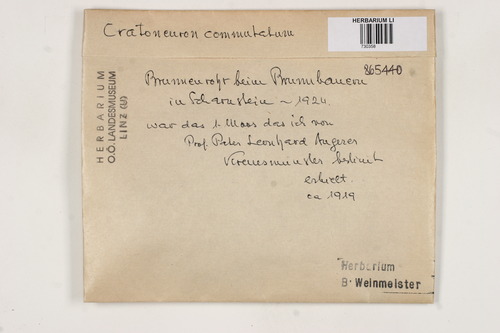 Cratoneuron commutatum
HERBARIUM LI
730358
865440
HERBARIUM
O.Ö. LANDESMUSEUM
LINZ (U)
Brunnenrohr beim Brunnbauern
in Scharnstein ~ 1920.
war das 1. Moos das ich von
Prof. Pater Leonhard Angerer
Kremsmünster bestimmt
erhielt.
ca 1919
Herbarium
B. Weinmeister